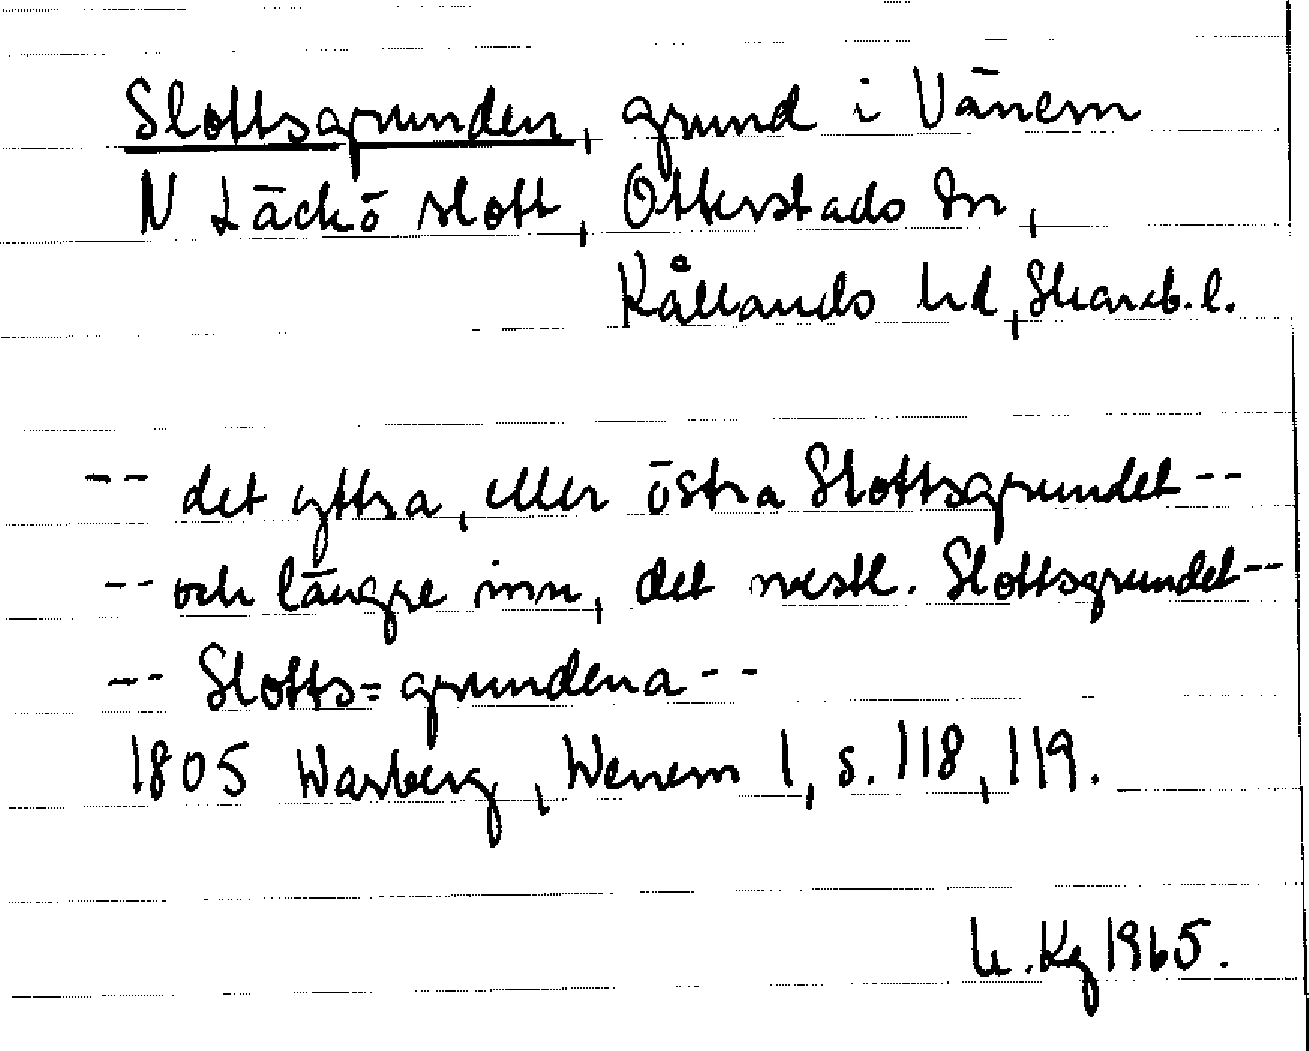 Slottsgrunden, grund i Vänern
N Läckö slott, Otterstads sn,
Kållands hd, Skarab. l.
-- det yttra, eller östra Slottsgrundet --
-- och längre inn, det vestl. Slottsgrundet --
-- Slotts=grundena --
1805 Warberg, Wenern 1, s. 118, 119.
Kg 1965.